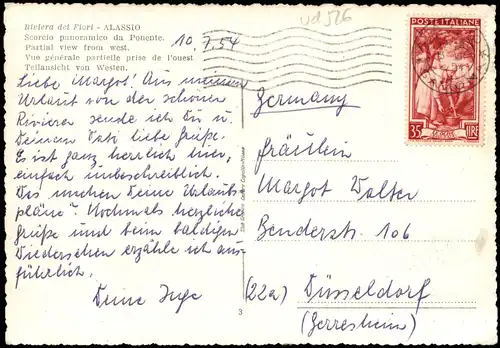 Riviera dei Fiori - ALASSIO
Scorcio panoramico da Ponente.
Partial view from west.
Vue générale partielle prise de l'ouest
Teilansicht von Westen.
10. 7.54
ud 526
POSTE ITALIANE
35 LIRE
Liebe Margot! Aus meinem
Urlaub von der schönen
Riviera sende ich Dir u.
Deinem Vati liebe Grüße.
Es ist ganz herrlich hier,
einfach unbeschreiblich.
Was machen Deine Urlaubs-
pläne? Nochmals herzliche
Grüße und beim baldigen
Wiedersehen erzähle ich aus-
führlich.
Deine Inge
3
Germany
Fräulein
Margot Walter
Benderstr. 106
(22a) Düsseldorf
(Gerresheim)